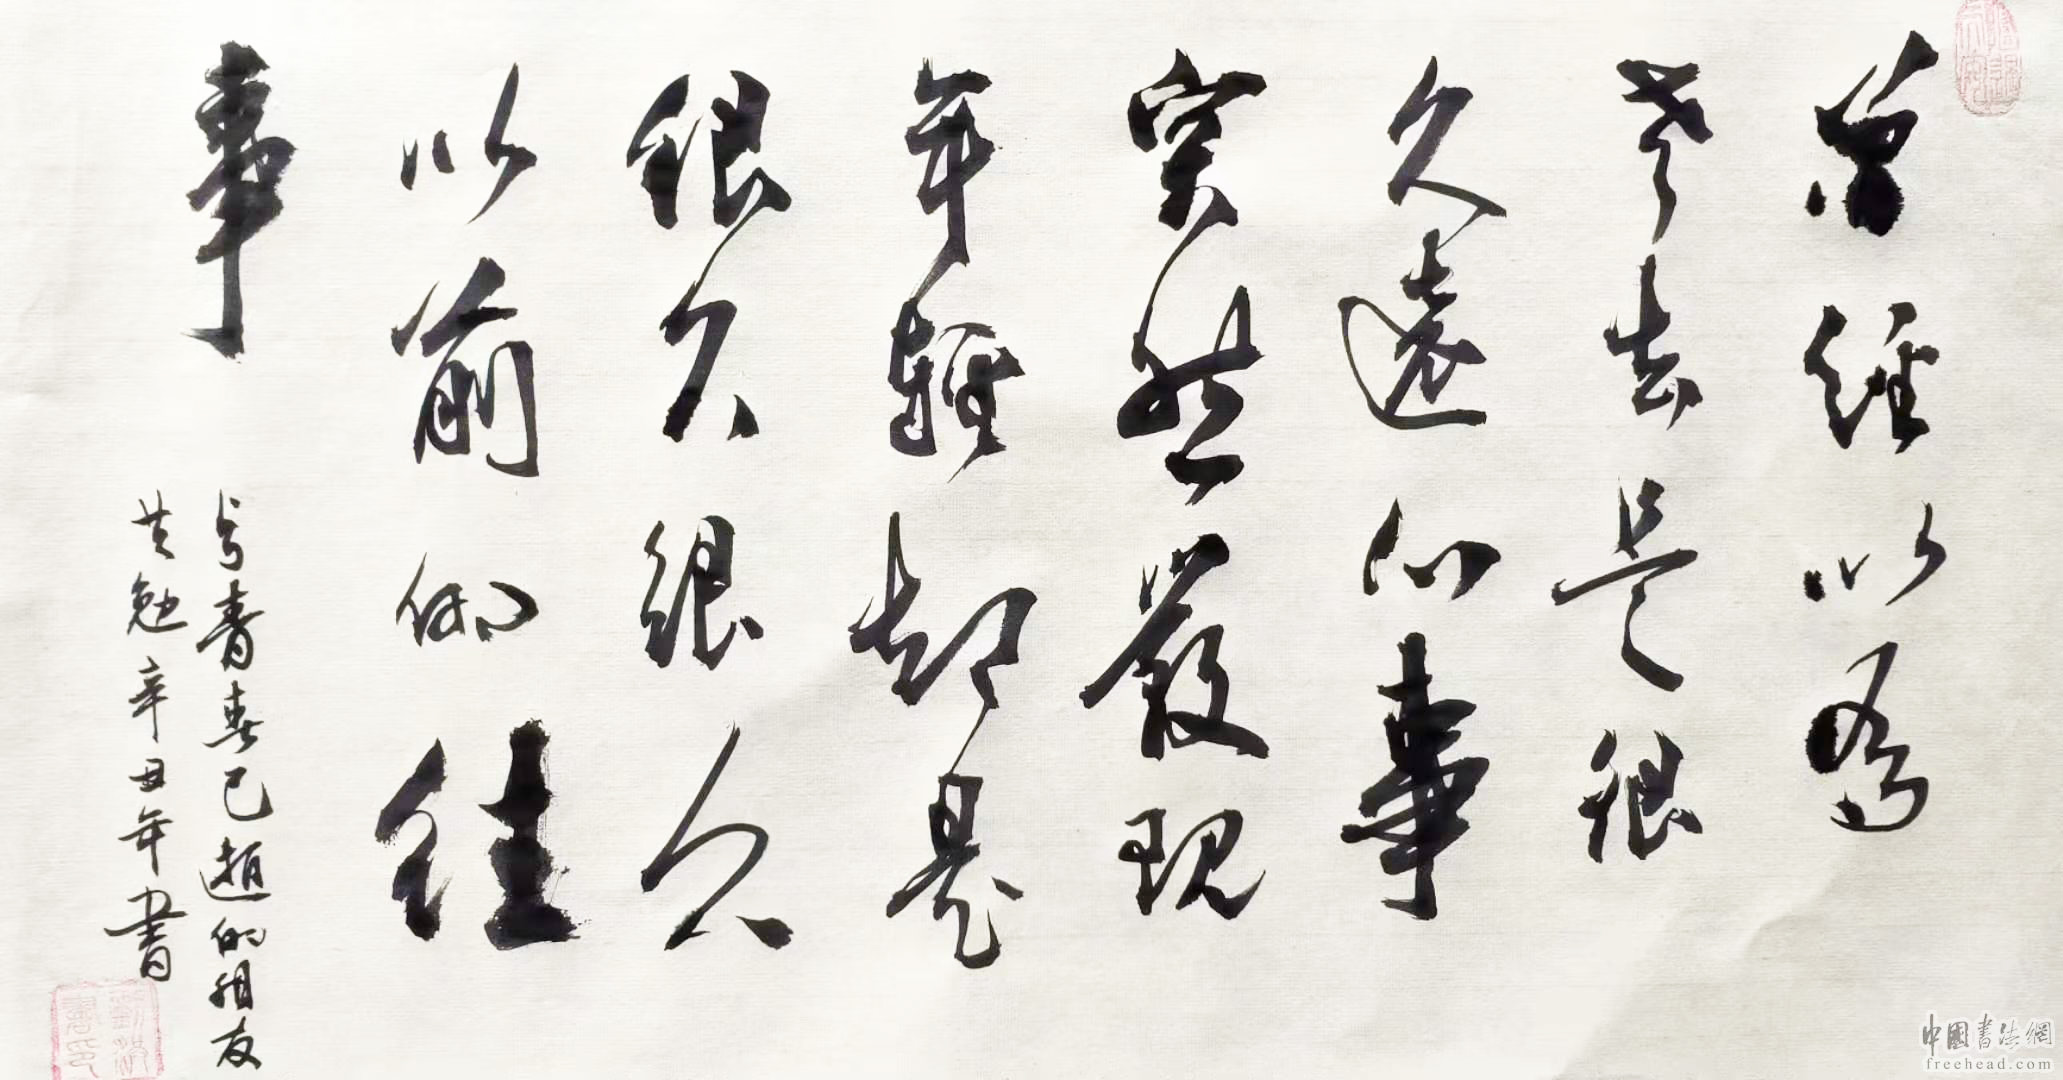 曾经以為
老去是很
久遠的事
突然發現
年轻却是
很久很久
以前的往
事
与青春已逝的朋友
共勉辛丑年书
中国书法網
freehead.com